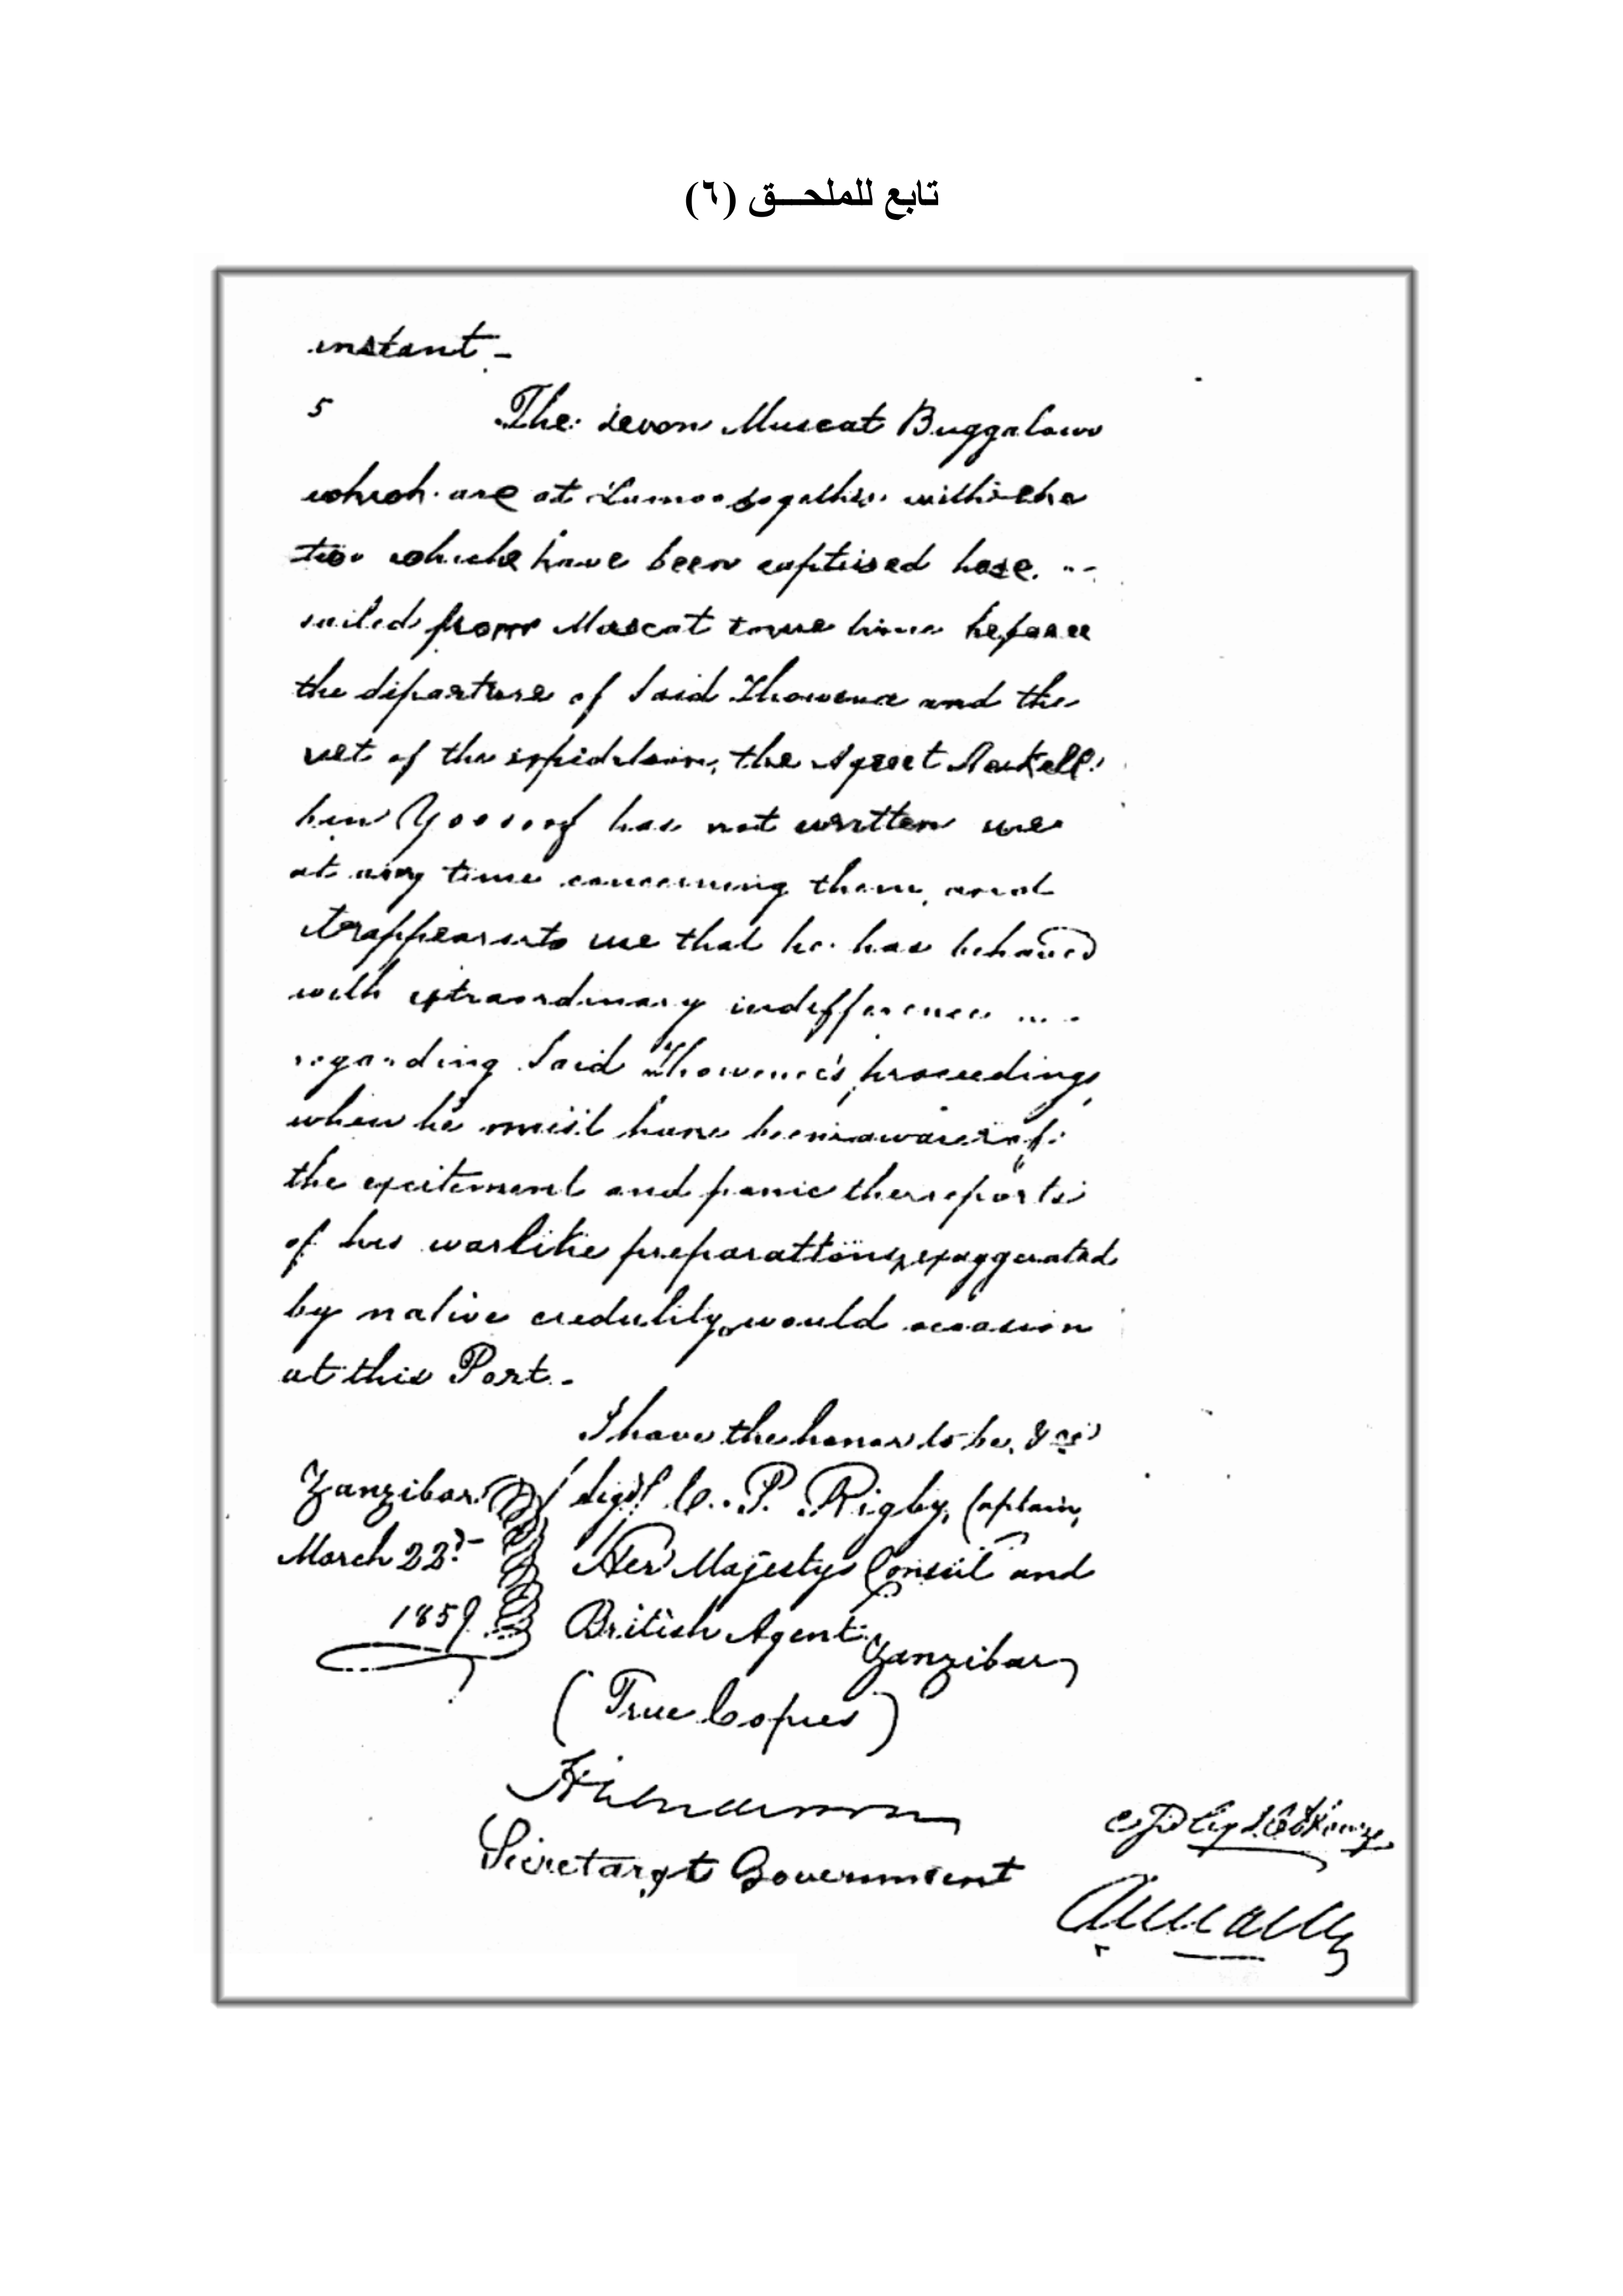 تابع للملحـــق (٦)
instant -
5 The seven Muscat Buggalows
which are at Lamoo together with the
two which have been captured here
sailed from Muscat some time before
the departure of Said Thowenee and the
rest of the expedition, the Agent
bin Yoosoof has not written me
at any time concerning them, and
it appears to me that he has behaved
with extraordinary indifference ....
regarding Said Thowenee's proceedings,
when he must have been aware of
the excitement and panic the reports
of his warlike preparations, exaggerated
by native credulity, would occasion
at this Port. -
I have the honor to be, &ca
Zanzibar / Sigd/ C. P. Rigby, Captain,
March 22d Her Majestys Consul and
1859 British Agent
Zanzibar
(True Copies)
Secretary to Government